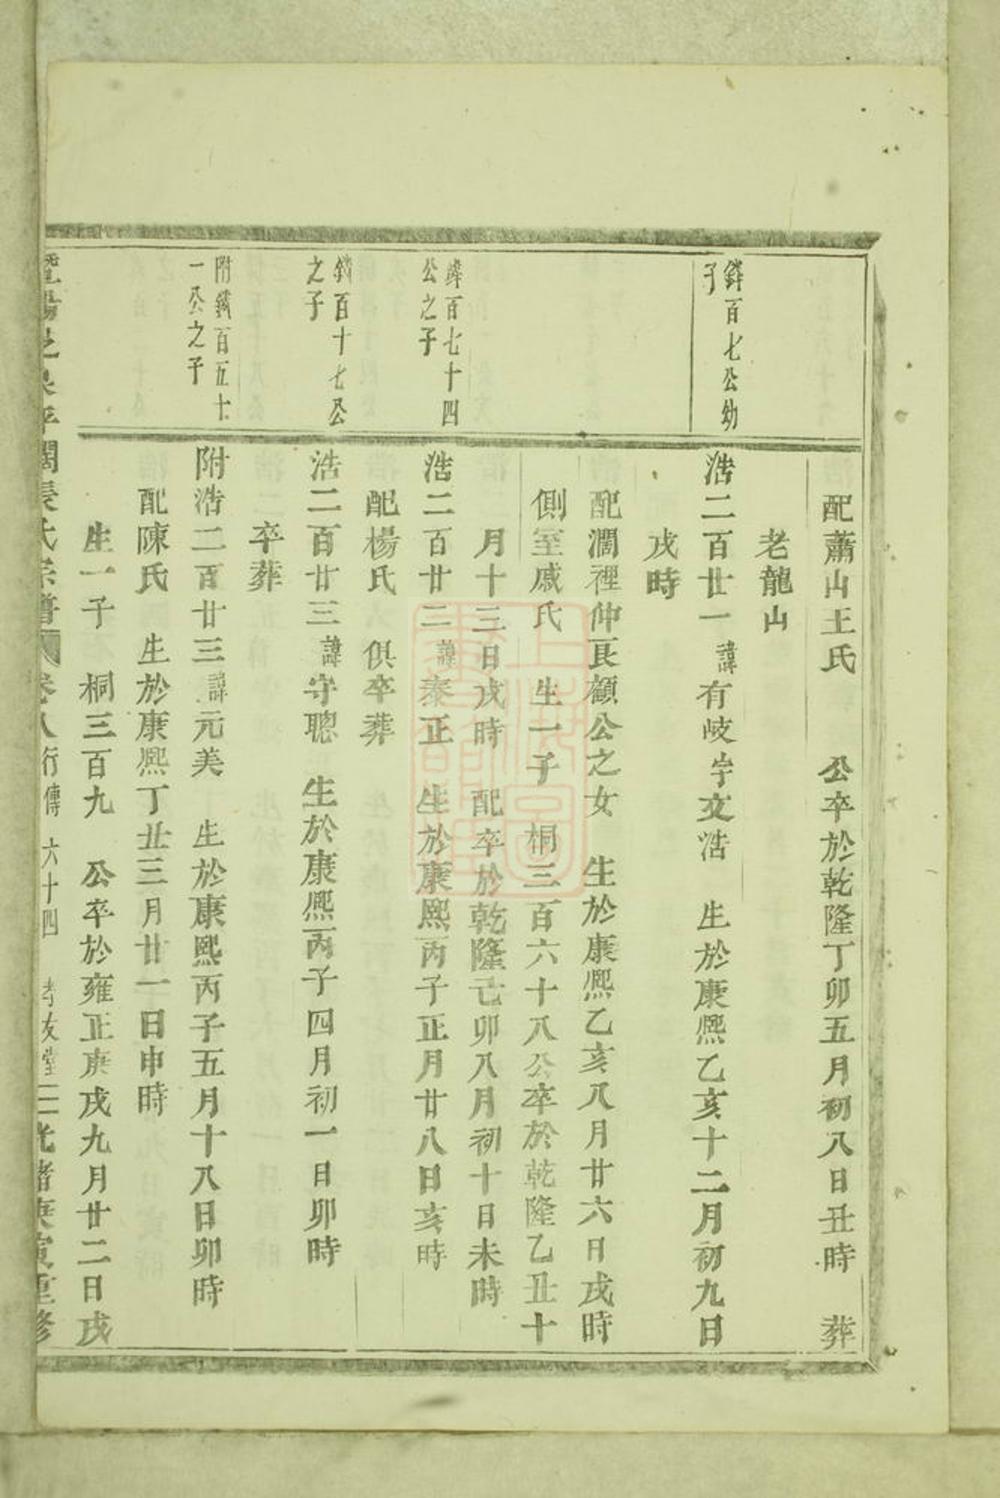 配蕭山王氏　公卒於乾隆丁卯五月初八日丑時　葬
老龍山
鏻百七公幼
子
浩二百廿一諱有岐字文浩　生於康熙乙亥十二月初九日
戌時
配濶裡仲良顧公之女　生於康熙乙亥八月廿六日戌時
側室戚氏　生一子　桐三百六十八公卒於乾隆乙丑十
月十三日戌時　配卒於乾隆己卯八月初十日未時
百七十四
公之子
浩二百廿二諱泰正　生於康熙丙子正月廿八日亥時
配楊氏　俱卒葬
百十七公
之子
浩二百廿三諱守聰　生於康熙丙子四月初一日卯時
卒葬
附百五十
一公之子
附浩二百廿三諱元美　生於康熙丙子五月十八日卯時
配陳氏　生於康熙丁丑三月廿一日申時
生一子　桐三百九　公卒於雍正庚戌九月廿二日戌
氏宗譜　卷八行傳　六十四　孝友堂　光緒庚寅重修